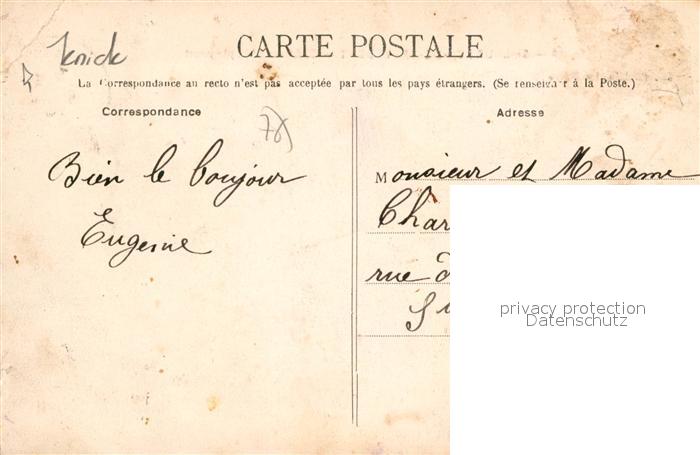 Knick
CARTE POSTALE
La Correspondance au recto n'est pas acceptée par tous les pays étrangers. (Se renseigner à la Poste.)
Correspondance
Adresse
78)
Bien le bonjour
Eugenie
Monsieur et Madame
Char
rue
privacy protection
Datenschutz